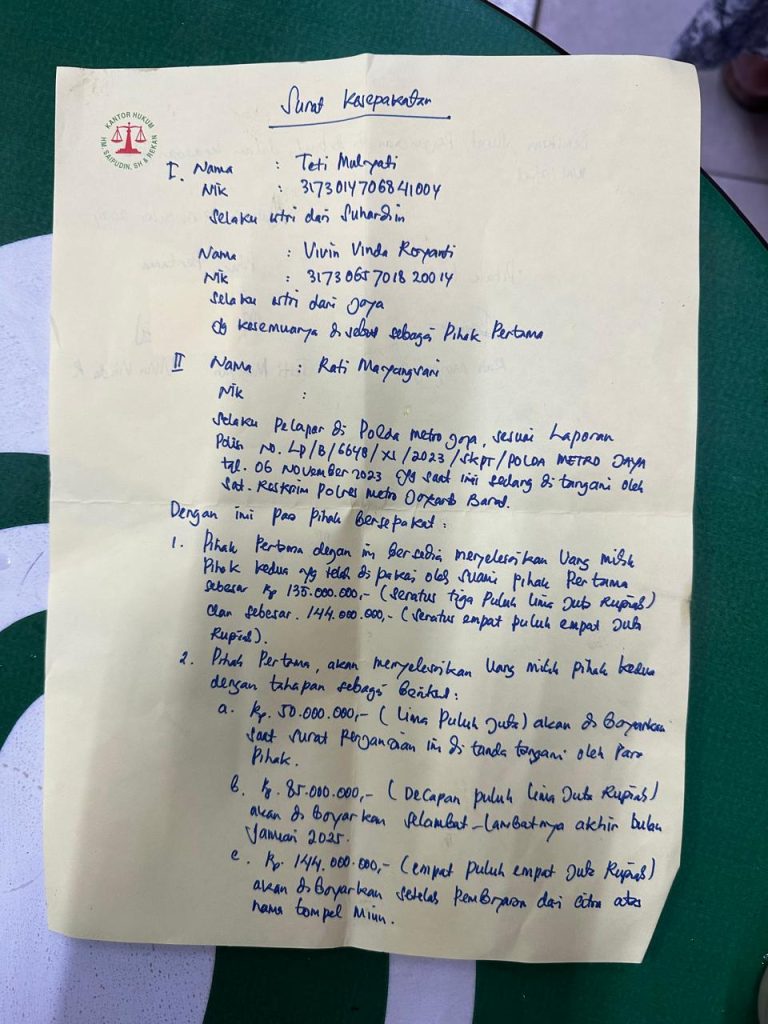 KANTOR HUKUM
HM. SAIPUDIN, SH & REKAN
Surat Kesepakatan
I. Nama : Teti Mulyati
Nik : 3173014706841004
Selaku istri dari Suhardin
Nama : Vivin Vinda Rosyanti
Nik : 3173065701820014
Selaku istri dari Jaya
yg kesemuanya di sebut sebagai Pihak Pertama
II Nama : Rati Maryangsari
Nik :
Selaku Pelapor di Polda metro jaya, sesuai Laporan
Polisi No. LP/B/6648/XI/2023/SKPT/POLDA METRO JAYA
tgl. 06 November 2023 yg saat ini sedang di tangani oleh
Sat. Reskrim Polres Metro Jakarta Barat.
Dengan ini para Pihak Bersepakat :
1. Pihak Pertama dengan ini bersedia menyelesaikan Uang milik
Pihak kedua yg telah di pakai oleh suami pihak Pertama
sebesar Rp 135.000.000,- (seratus tiga Puluh Lima Juta Rupiah)
dan sebesar. 144.000.000,- (seratus empat puluh empat Juta
Rupiah).
2. Pihak Pertama, akan menyelesaikan Uang milik pihak kedua
dengan tahapan sebagai Berikut :
a. Rp. 50.000.000,- (Lima Puluh Juta) akan di Bayarkan
saat surat Perjanjian ini di tanda tangani oleh Para
Pihak.
b. Rp. 85.000.000,- (Delapan puluh Lima Juta Rupiah)
akan di Bayarkan selambat-lambatnya akhir bulan
Januari 2025.
c. Rp. 144.000.000,- (empat puluh empat Juta Rupiah)
akan di Bayarkan setelah Pembayaran dari Citra atas
nama tompel Miun.